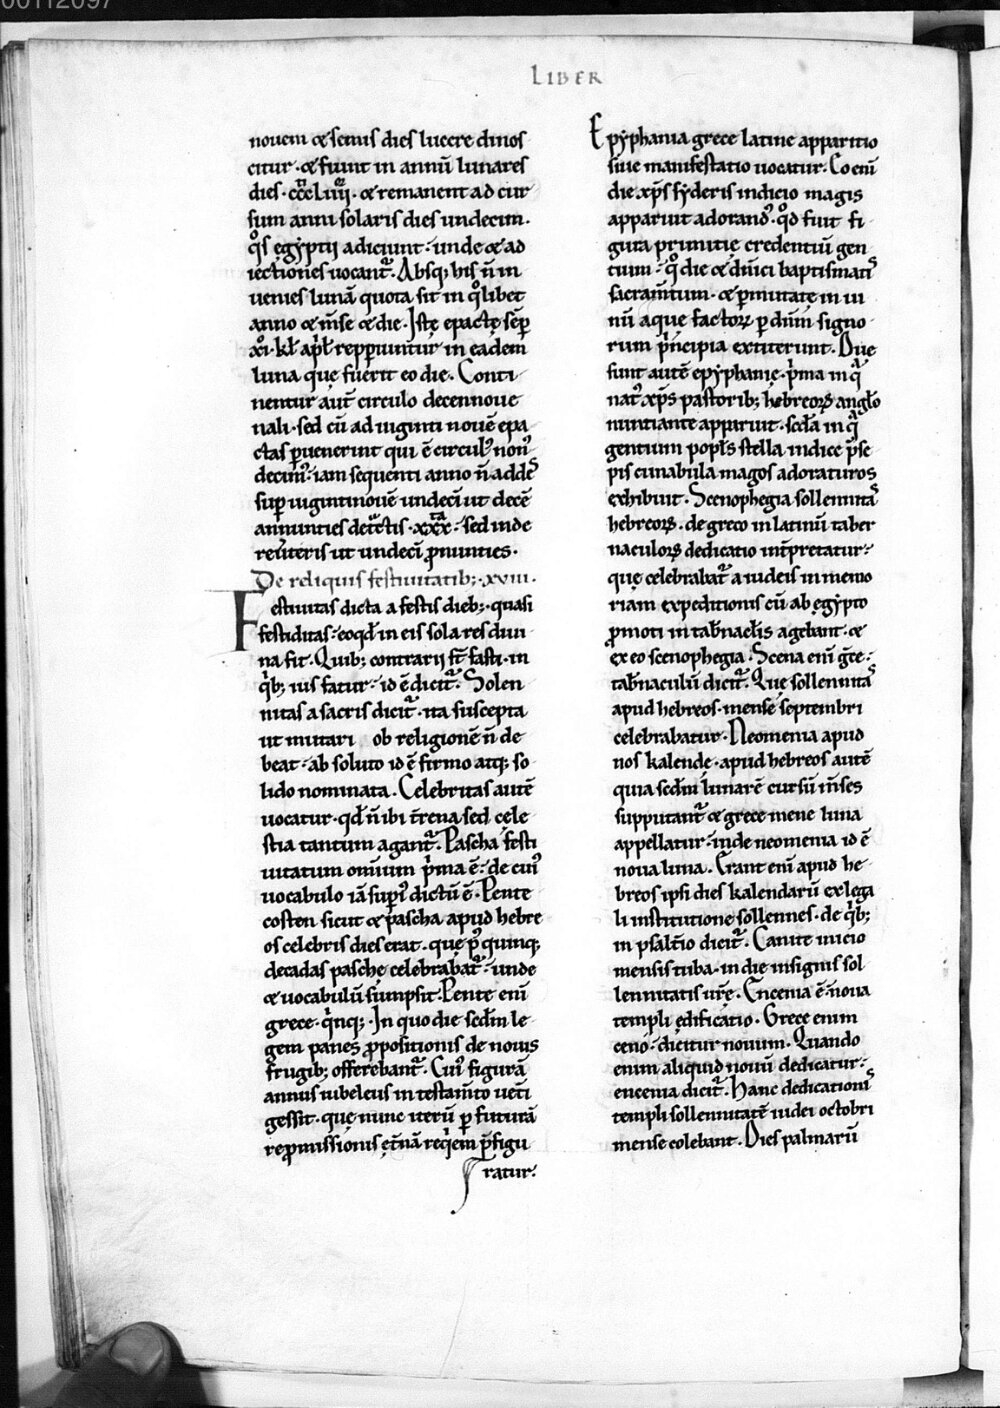 00112097
LIBER
nouem & semis dies lucere dinos
citur · & fiunt in annū lunares
dies · cccLiiii · & remanent ad cur
sum anni solaris dies undecim ·
q̊s ęgyptii adiciunt · unde & ad
iectiones uocant᷑ . Absq; his ñ in
uenies lunā quota sit in q̊libet
anno & m̄se & die . Istę epactę sēp
xi · kł apł repperiuntur in eadem
luna que fuerit eo die . Conti
nentur aut̄ circulo decennoue
nali · sed cū ad uiginti nouē epa
ctas puenerint qui ē circul᷒ non᷒
decim᷒ · iam sequenti anno ñ addes
sup uigintinouē undecī ut decē
annunties detctis · xxx · sed inde
reūteris ut undecī ꝓnunties ·
De reliquis festiuitatib; · xviii ·
Festiuitas dicta a festis dieb; · quasi
festiditas · eoqd̄ in eis sola res diui
na fit . Quib; contrarii st̄ fasti · in
q̇b; ius fatur · id ē dicit᷑ . Solen
nitas a sacris dicit᷑ · ita suscepta
ut mutari ob religionē ñ de
beat · ab soluto id ē firmo atq; so
lido nominata . Celebritas autē
uocatur · qd̄ ñ ibi t̄rena sed cęle
stia tantum agant᷑ . Pascha festi
uitatum omīum p̍ma ē · de cui᷒
uocabulo iā supi᷒ dictū ē . Pente
costen sicut & pascha apud hebre
os celebris dies erat · que p᷒ quinq;
decadas paschę celebrabat᷑ · unde
& uocabulū sumpsit . Pente enī
grece · q̍nq; · In quo die scdm le
gem panes ꝓpositionis de nouis
frugib; offerebant᷑ . Cui᷒ figurā
annus iubeleus in testam̄to uet̄i
gessit · que nunc iterū p futurā
reꝓmissionis ęt̄nā req̍em p̄figu
ratur ·
Epyphania grece latine apparitio
siue manifestatio uocatur . Eo enī
die xp̄s syderis indicio magis
apparuit adorand᷒ · qd̄ fuit fi
gura primitię credentiū gen
tium · q̊ die & dn̄ici baptismatis
sacram̄tum · & pmutatę in ui
nū aque factoꝝ p dn̄m signo
rum p̍ncipia extiterunt . Due
sunt autē epyphanię · p̍ma in q̄
nat᷒ xp̄s pastorib; hebreoꝝ angło
nuntiante apparuit · scda in q̄
gentium popłs stella indice p̄se
pis cunabula magos adoraturos
exhibuit . Scenophegia sollennitas
hebreoꝝ · de greco in latinū taber
naculoꝝ dedicatio int̄pretatur ·
que celebrabat᷑ a iudeis in memo
riam expeditionis cū ab ęgypto
ꝓmoti in tab̄nacłis agebant · &
ex eo scenophegia . Scena enī gc̄e ·
tab̄naculū dicit᷑ . Que sollennitas
apud hebreos · mense septembri
celebrabatur . Neomenia apud
nos kalende · apud hebreos autē
quia scdm lunarē cursū m̄ses
supputant᷑ & grece mene luna
appellatur · inde neomenia id ē
noua luna . Erant enī apud he
breos ipsi dies kalendarū ex lega
li institutione sollennes · de q̍b;
in psalt̄io dicit᷑ . Canite inicio
mensis tuba · in die insignis sol
lennitatis ur̄ę . Encenia ē noua
templi ędificatio . Grece enim
ceno · dicitur nouum . Quando
enim aliquid nouū dedicatur ·
encenia dicit᷑ . Hanc dedicationis
templi sollennitatē iudei octobri
mense colebant . Dies palmarū